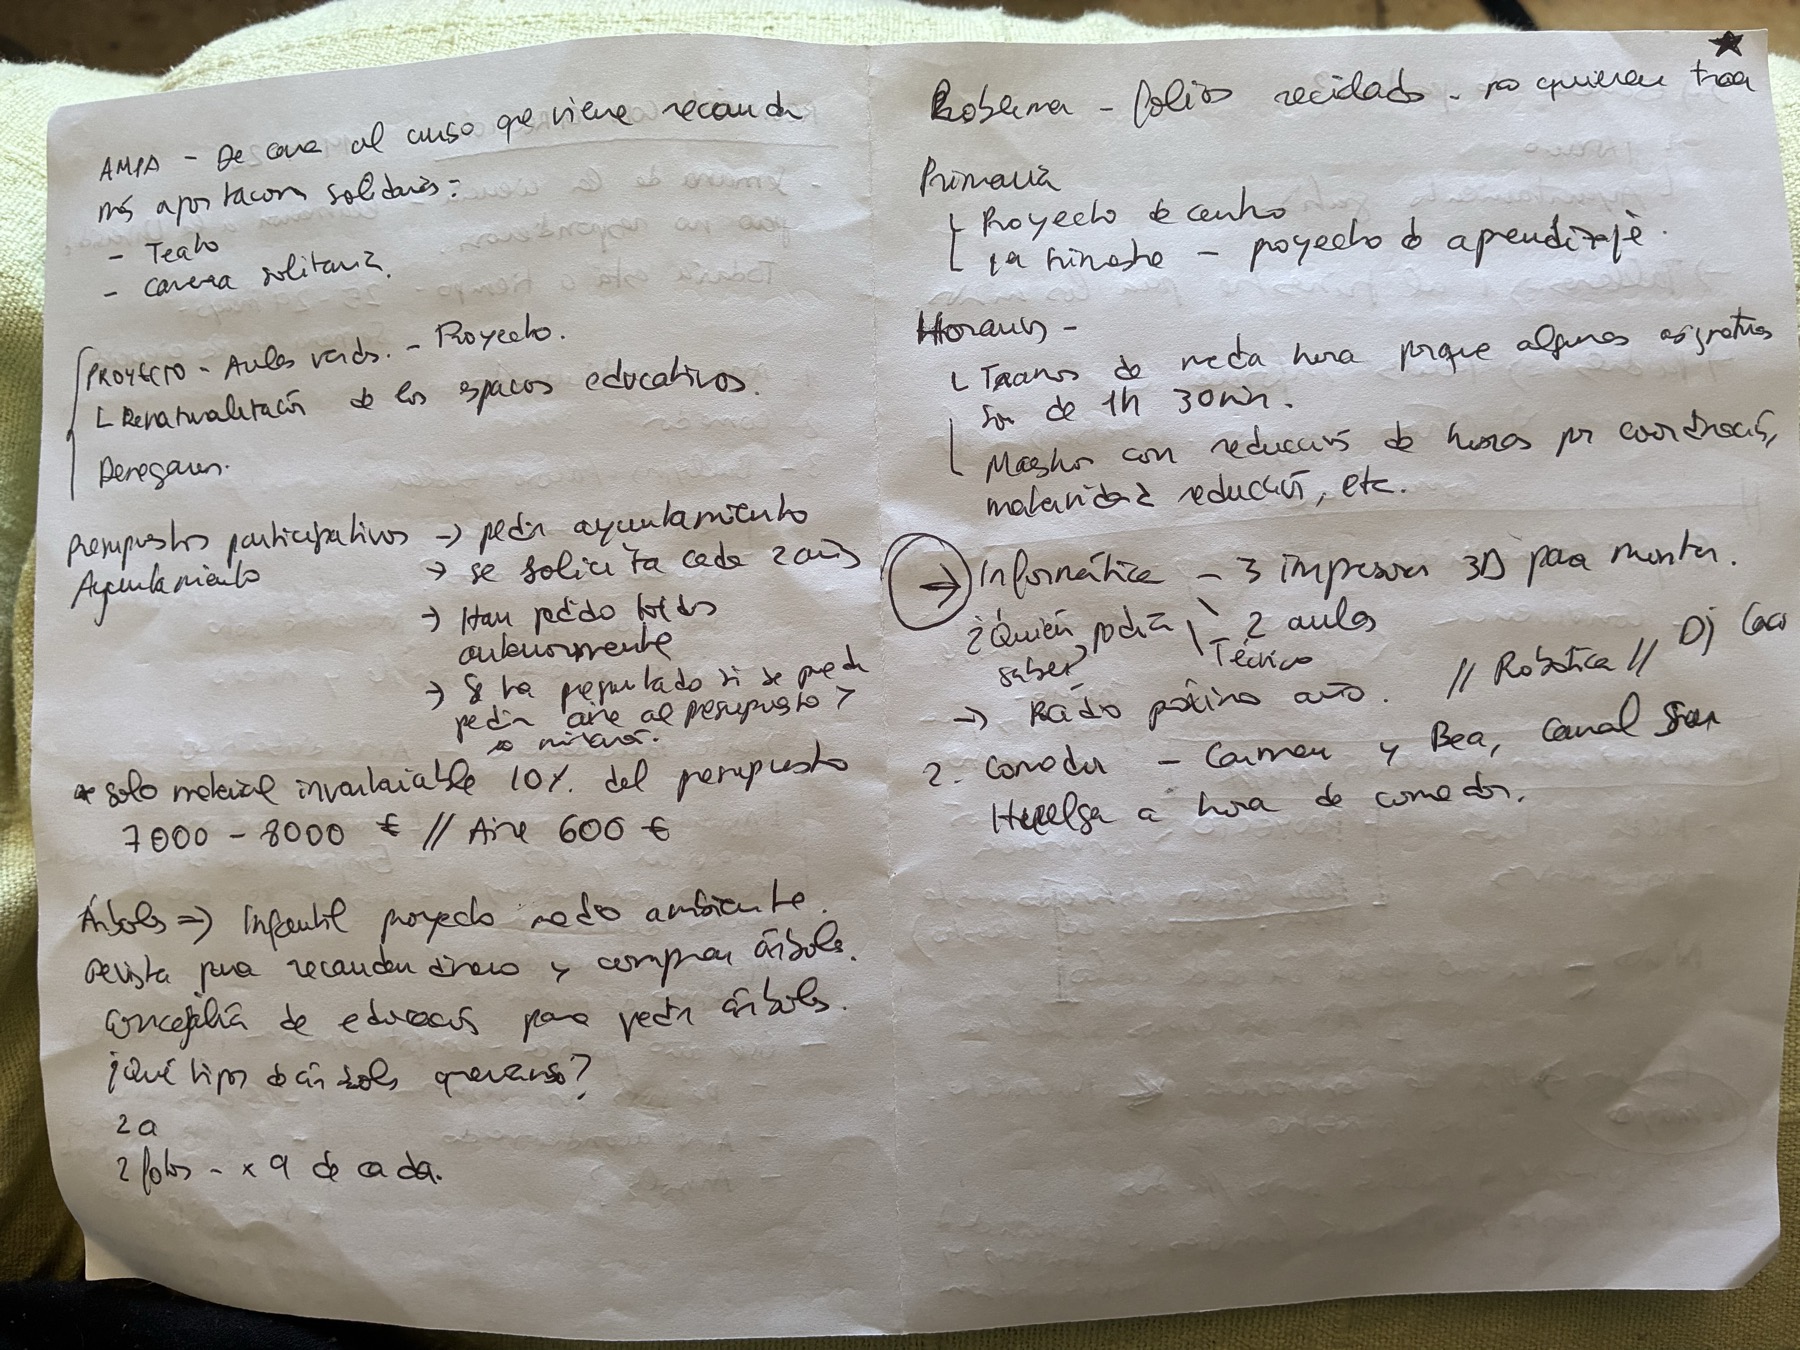 AMPA - De cara al curso que viene recauda
más aportacions solidarias:
- Teatro
- Carrera solitaria.
PROYECTO - Aulas verds. - Proyecto.
Renaturalitación de los espacos educativos.
Denegaron.
Presupustos participativos → pedir ayuntamiento
Ayuntamiento → se solicita cada 2 años
→ Han pedido toldos
anteriormente
→ Se ha preguntado si se puede
pedir aire al presupuesto >
lo mirará.
* solo material inventariable 10% del presupuesto
7000 - 8000 € // Aire 600 €
Árboles => Infantil proyecto medio ambiente.
Revista para recaudar dinero y comprar árboles.
Concejalía de educación para pedir árboles.
¿Qué tipos de árboles queremos?
2 a
2 fotos - x 9 de cada.
★
Problema - folios reciclado - no quieren traer
Primaria
Proyecto de centro
1er trimestre - proyecto de aprendizaje.
Horarios -
Tramos de media hora porque algunas asignaturas
son de 1h 30min.
Maestros con reducción de horas por coordinación,
maternidad reducción, etc.
→ Informática - 3 impresoras 3D para montar.
¿Quién podría \ \ 2 aulas
saber? Técnico
→ Radio próximo año. // Robótica // Dj Coco
2. Comedor - Carmen y Bea, Canal
Huelga a hora de comedor.